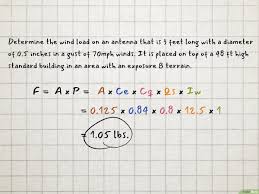 Determine the wind load on an antenna that is 3 feet long with a diameter
of 0.5 inches in a gust of 70mph winds. It is placed on top of a 48 ft high
standard building in an area with an exposure B terrain.
F = A x P = A x Ce x Cq x Qs x Iw
= 0.125 x 0.84 x 0.8 x 12.5 x 1
= 1.05 lbs.